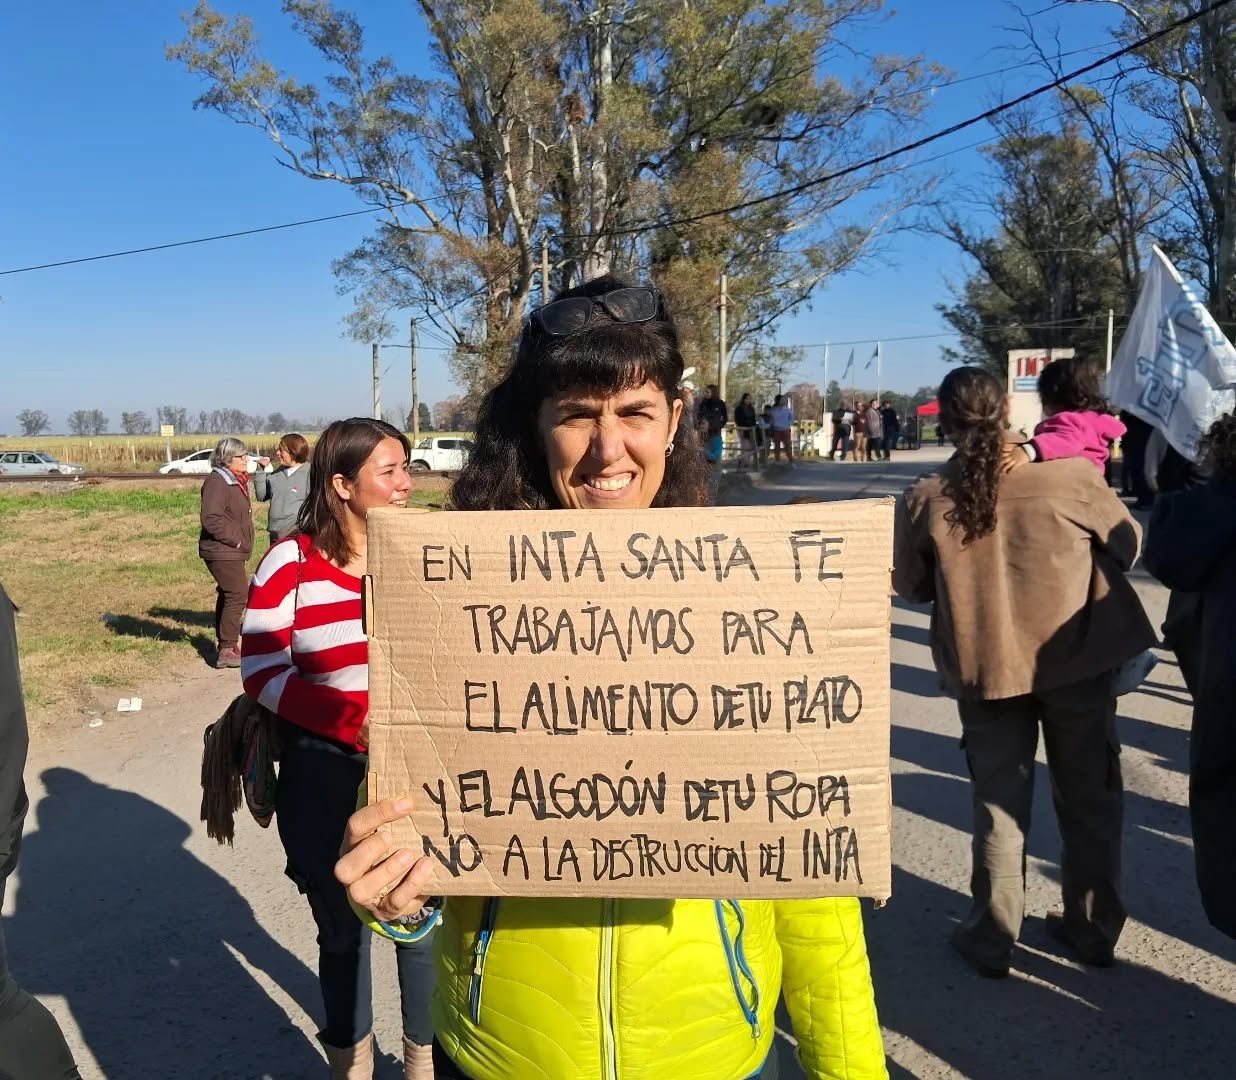 INT
EN INTA SANTA FE
TRABAJAMOS PARA
EL ALIMENTO DE TU PLATO
Y EL ALGODÓN DE TU ROPA
NO A LA DESTRUCCION DEL INTA